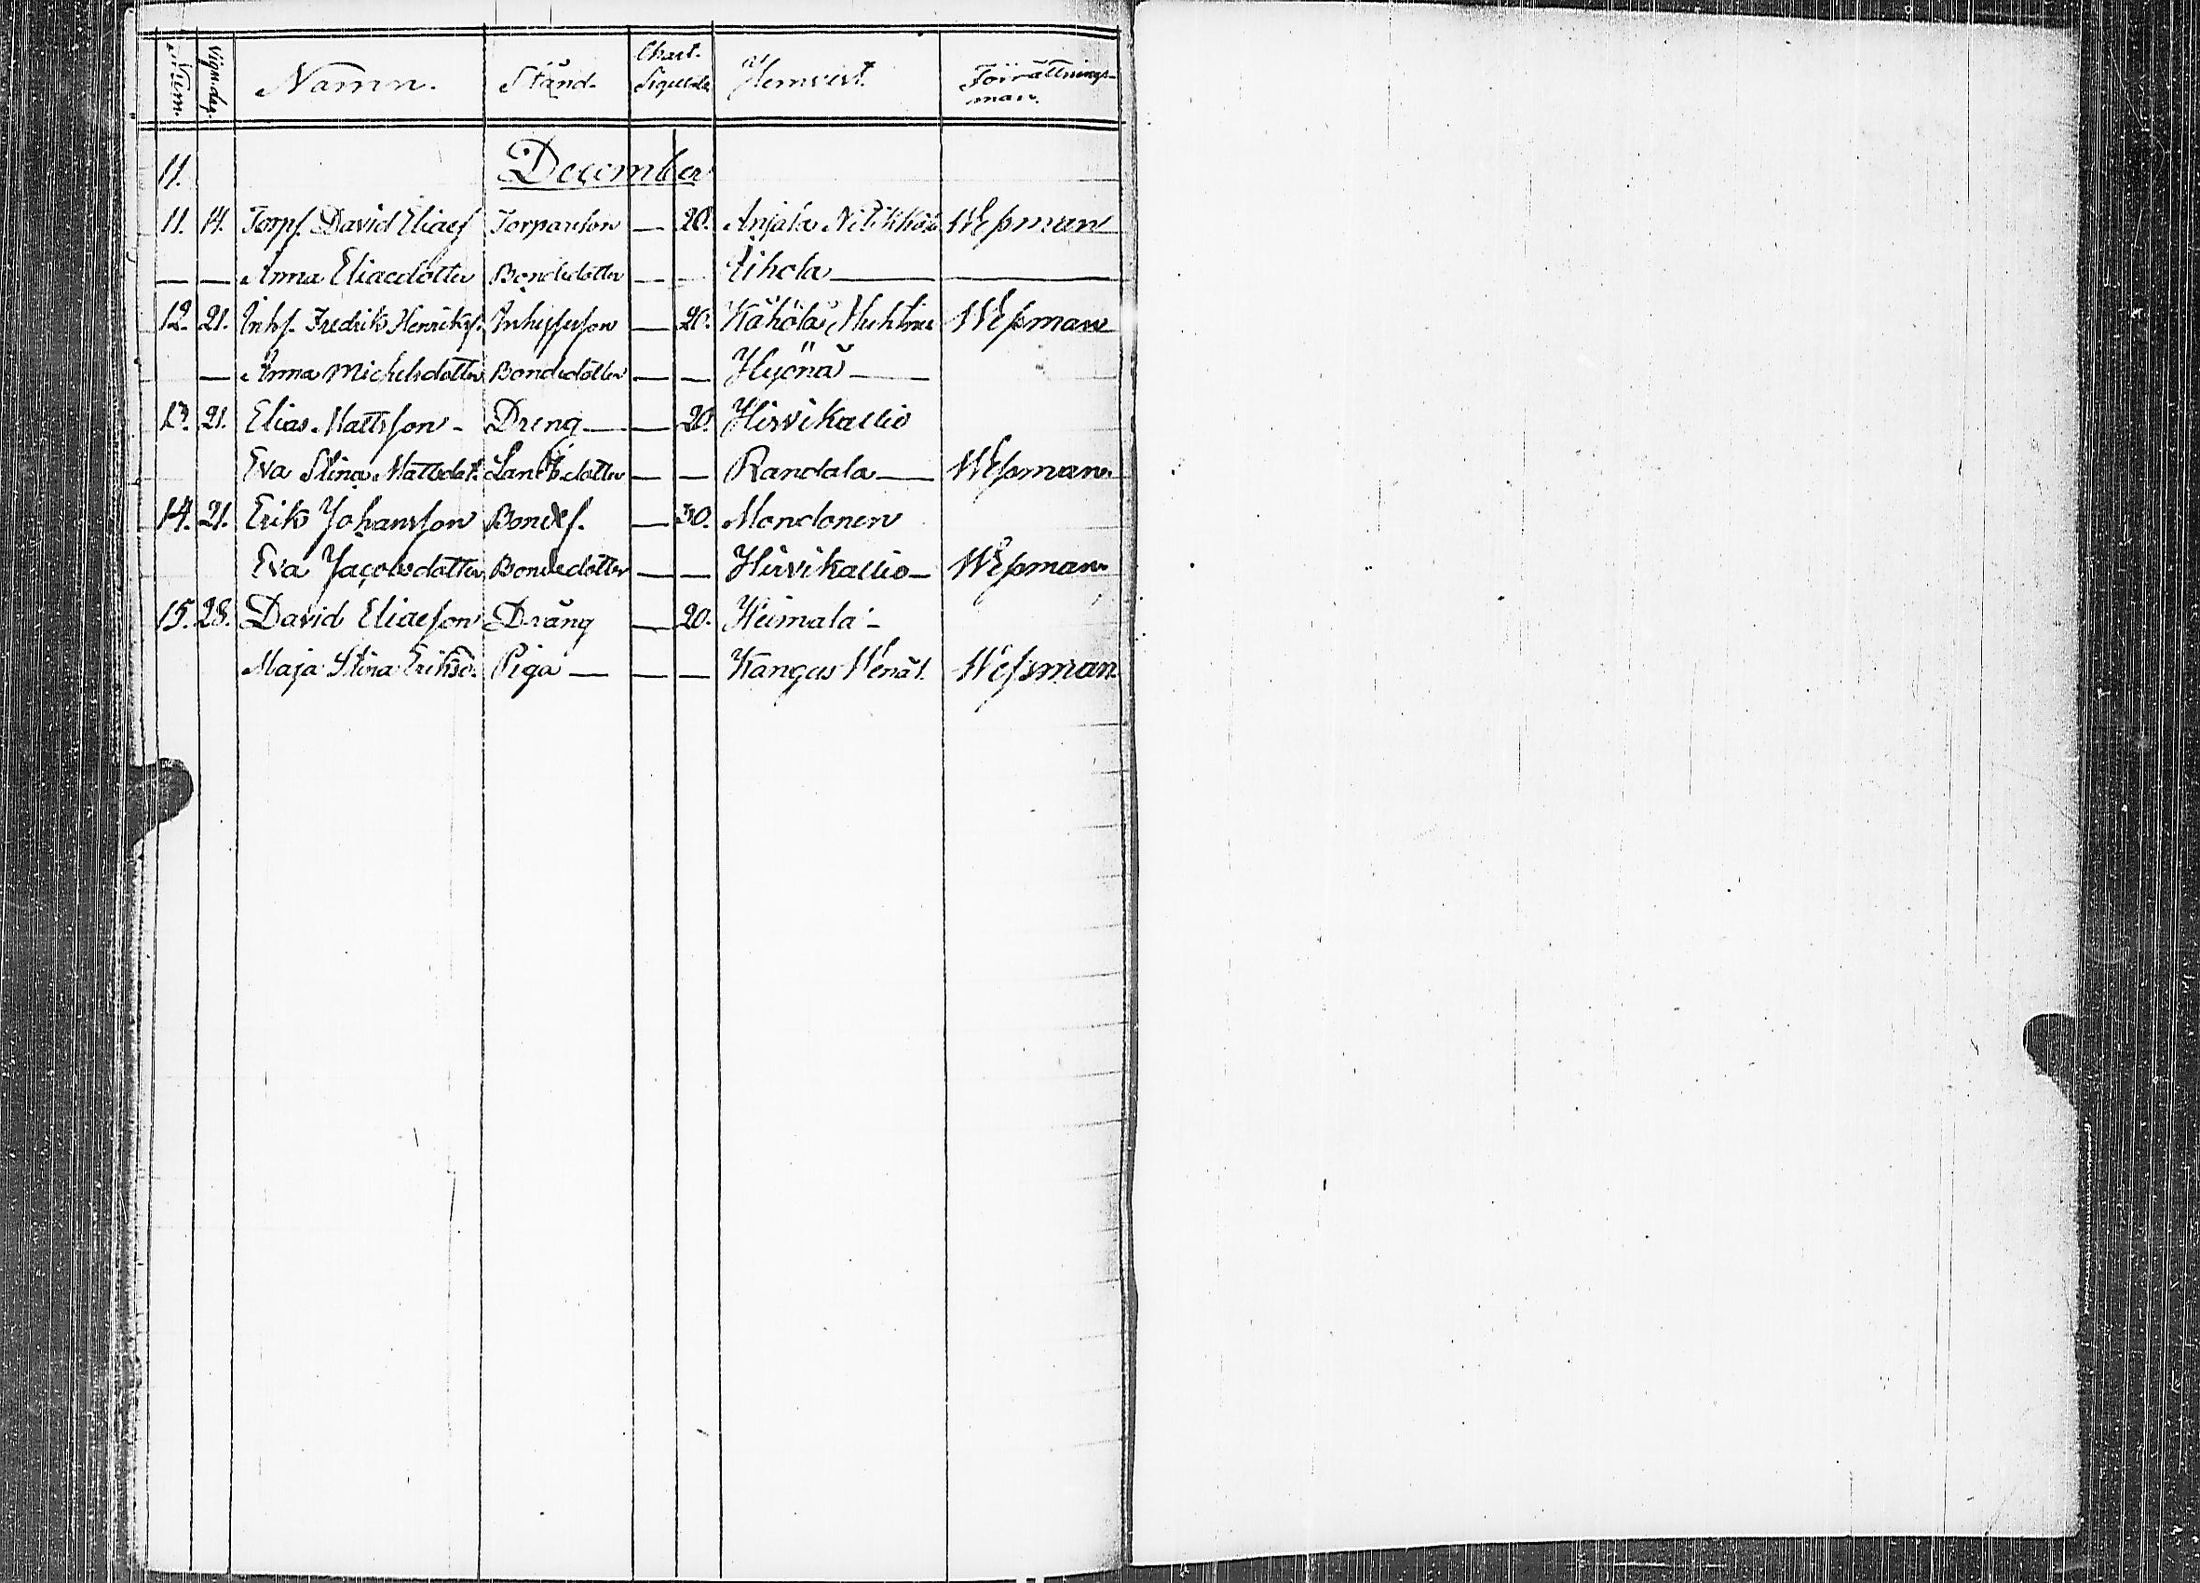 Num. Vign.dag. Namn. Stånd. Chart. Sigill. Hemvist. Förrättnings-
man.
11. December
11. 14. Torps. David Eliaes. Torpareson — 20. Anjala Wessman
— — Anna Eliaedotter Bondedotter — — Eihola — —
12. 21. Inhs. Fredrik Henriks. Inhysesson — 20. Kähölä Wessman
— Anna Michelsdotter Bondedotter — — Hyönä —
13. 21. Elias Mattsson — Dreng — — 20. Hirvikallio
Eva Stina Mattsdot. Landb.dotter — — Randala — Wessman
14. 21. Erik Johansson Bondes. — 30. Mondonen
Eva Jacobsdotter Bondedotter — — Hirvikallio — Wessman
15. 28. David Eliaeson Dräng — 20. Heimala —
Maja Stina Eriksd. Piga — — — Kangas Wessman